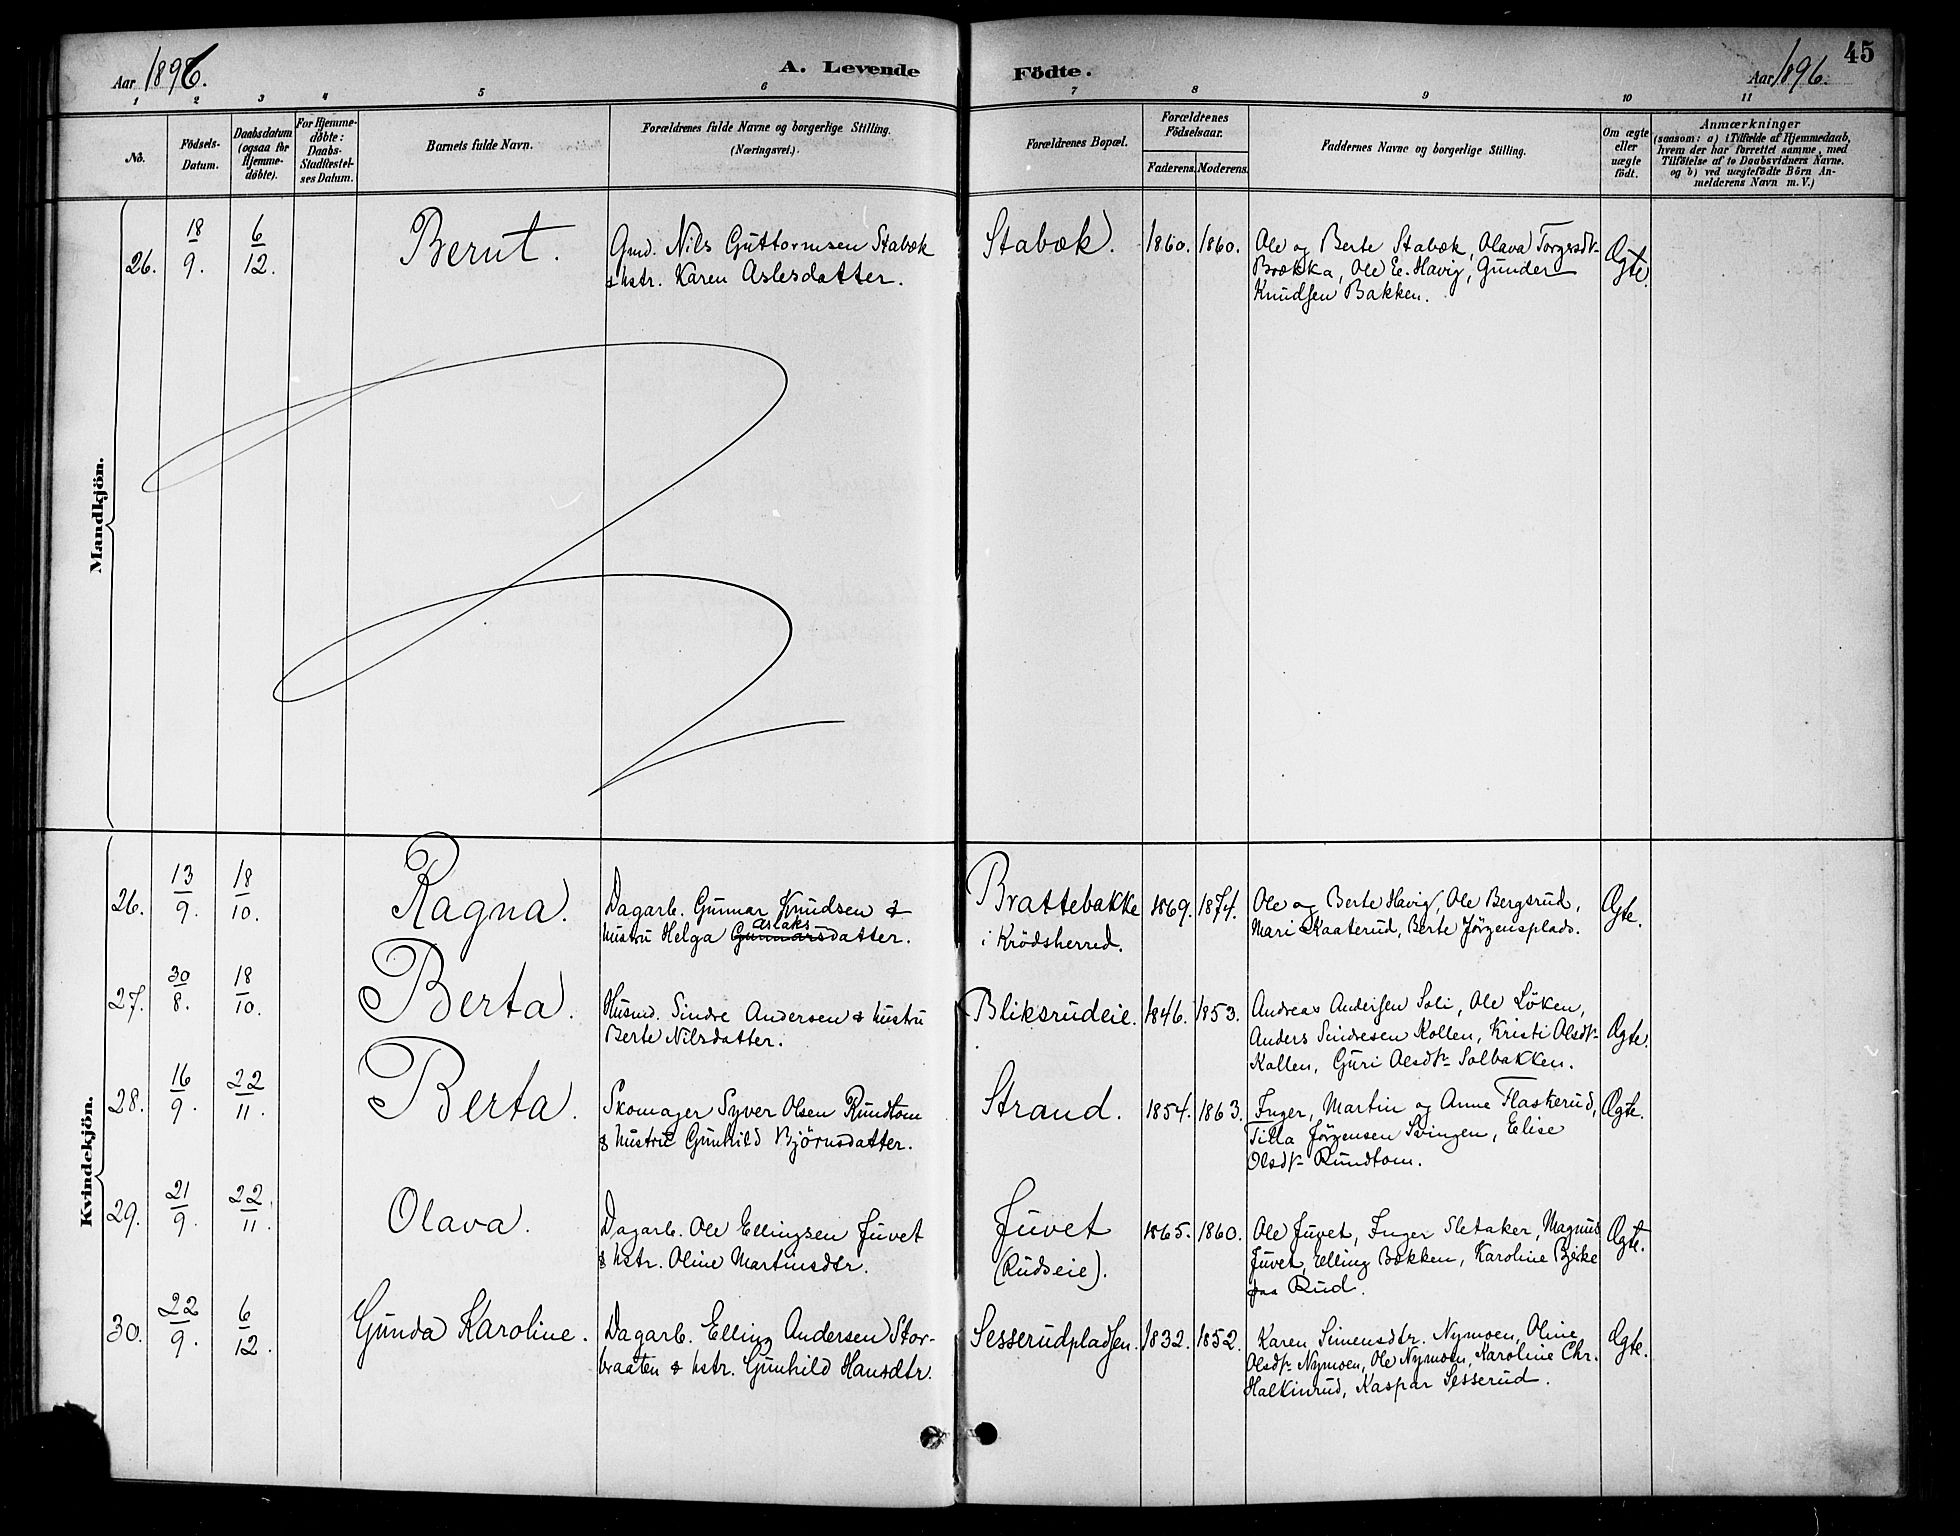 45
Aar 1896.
A. Levende Födte.
Aar 1896.
1 2 3 4 5 6 7 8 9 10 11
No.
Födsels-Datum.
Daabsdatum (ogsaa for Hjemme-döbte).
For Hjemme-döbte: Daabs-Stadfæstel-ses Datum.
Barnets fulde Navn.
Forældrenes fulde Navne og borgerlige Stilling.
(Næringsvei.)
Forældrenes Bopæl.
Forældrenes Födselsaar.
Faderens. Moderens.
Faddernes Navne og borgerlige Stilling.
Om ægte eller uægte födt.
Anmærkninger
(saasom: a) i Tilfælde af Hjemmedaab,
hvem der har forrettet samme, med
Tilföielse af to Daabsvidners Navne.
og b) ved uægtefödte Börn An-
melderens Navn m. V.)
Mandkjön.
26. 18/9. 6/12. Bernt. Gmd. Nils Guttormsen Stabæk Stabæk. 1860. 1860. Ole og Berte Stabæk, Olava Torgrsdtr
& hstr. Karen Aslesdatter. Brækka, Ole E. Havig, Gunder Ægte.
Knudsen Bakken.
Kvindekjön.
26. 13/9. 18/10. Ragna. Dagarb. Gunnar Knudsen & Brattebakke 1869. 1874. Ole og Berte Havig, Ole Bergsrud, Ægte.
Aslaks
hustru Helga Gunnarsdatter. i Krödsherred. Mari Kaaterud, Berte Jörgensplads.
27. 30/8. 18/10. Berta. Husmd. Sindre Andersen & hustru Bliksrudeie. 1846. 1853. Andreas Andersen Soli, Ole Löken,
Berte Nilsdatter. Anders Sindresen Kollen, Kristi Olsdtr Ægte.
Kollen, Guri Olsdtr Solbakken.
28. 16/9. 22/11. Berta. Skomager Syver Olsen Rundtom Strand. 1854. 1863. Inger, Martin og Anne Flaskerud, Ægte.
& hustru Gunhild Björnsdatter. Tilla Jörgensen Svingen, Elise
Olsdtr Rundtom.
29. 21/9. 22/11. Olava. Dagarb. Ole Ellingsen Juvet Juvet 1865. 1860. Ole Juvet, Inger Sletaker, Magnus Ægte.
& hstr. Oline Martinsdtr. (Rudseie). Juvet, Elling Bækken, Karoline
paa Rud.
30. 22/9. 6/12. Gunda Karoline. Dagarb. Elling Andersen Stor- Sesserudpladsen. 1832. 1852. Karen Simensdtr. Nymoen, Oline Ægte.
braaten & hstr. Gunhild Hansdtr. Olsdtr Nymoen, Ole Nymoen, Karoline Chr.
Halkinrud, Kaspar Sesserud.